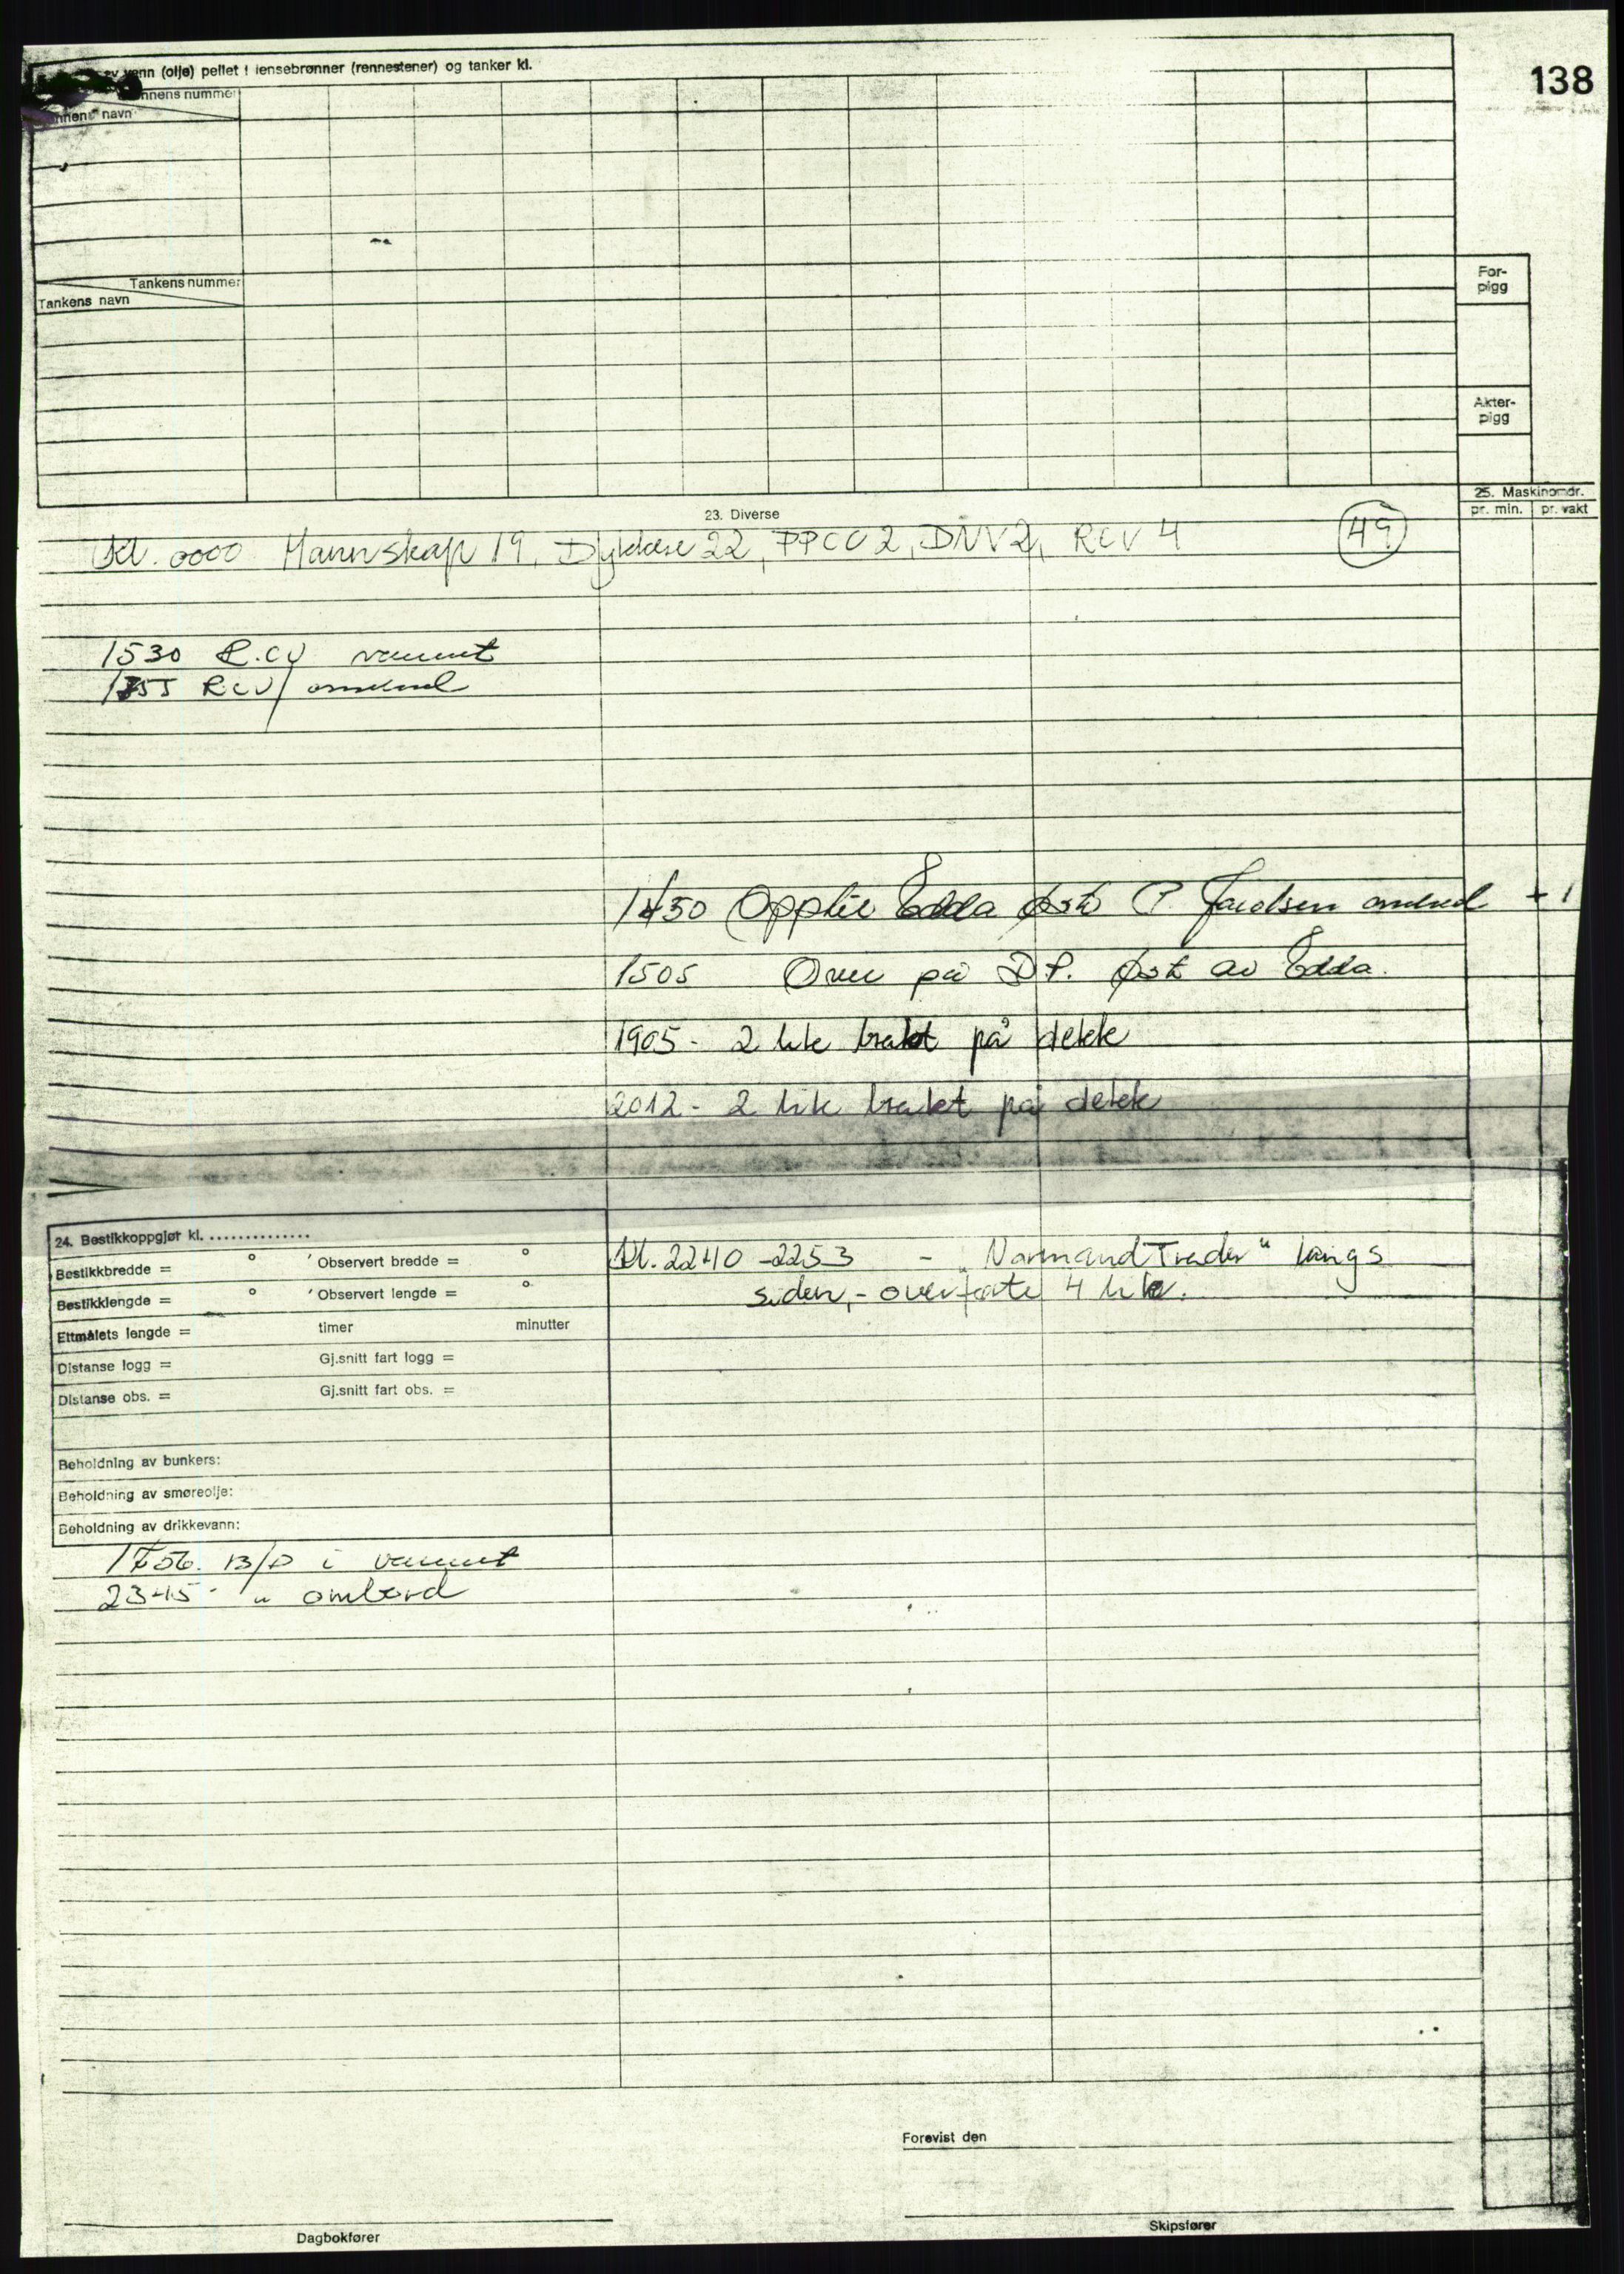 138
av vann (olje) peilet i lensebrønner (rennestener) og tanker kl.
nnens nummer
nnens navn
Tankens nummer
Tankens navn
For-
pigg
Akter-
pigg
25. Maskinomdr.
pr. min. pr. vakt
23. Diverse
Kl. 0000 Mannskap 19, Dykkere 22, PPCO 2, DNV 2, RCV 4 49
1530 R.CV vannet
RCV ombord
1450 Opptil Edda øst P. Jacobsen ombord + 1
1505 Over på DP. øst av Edda.
1905 - 2 lik brakt på dekk
2012 - 2 lik brakt på dekk
24. Bestikkoppgjør kl. ..............
Bestikkbredde = ° ' Observert bredde = °
Bestikklengde = ° ' Observert lengde = °
Ettmålets lengde = timer minutter
Distanse logg = Gj.snitt fart logg =
Distanse obs. = Gj.snitt fart obs. =
Beholdning av bunkers:
Beholdning av smøreolje:
Beholdning av drikkevann:
Kl. 2240 - 2253 - "Normand Trader" langs
siden, - overførte 4 lik.
1756. B/D i vannet
2345 - " ombord
Forevist den
Dagbokfører
Skipsfører